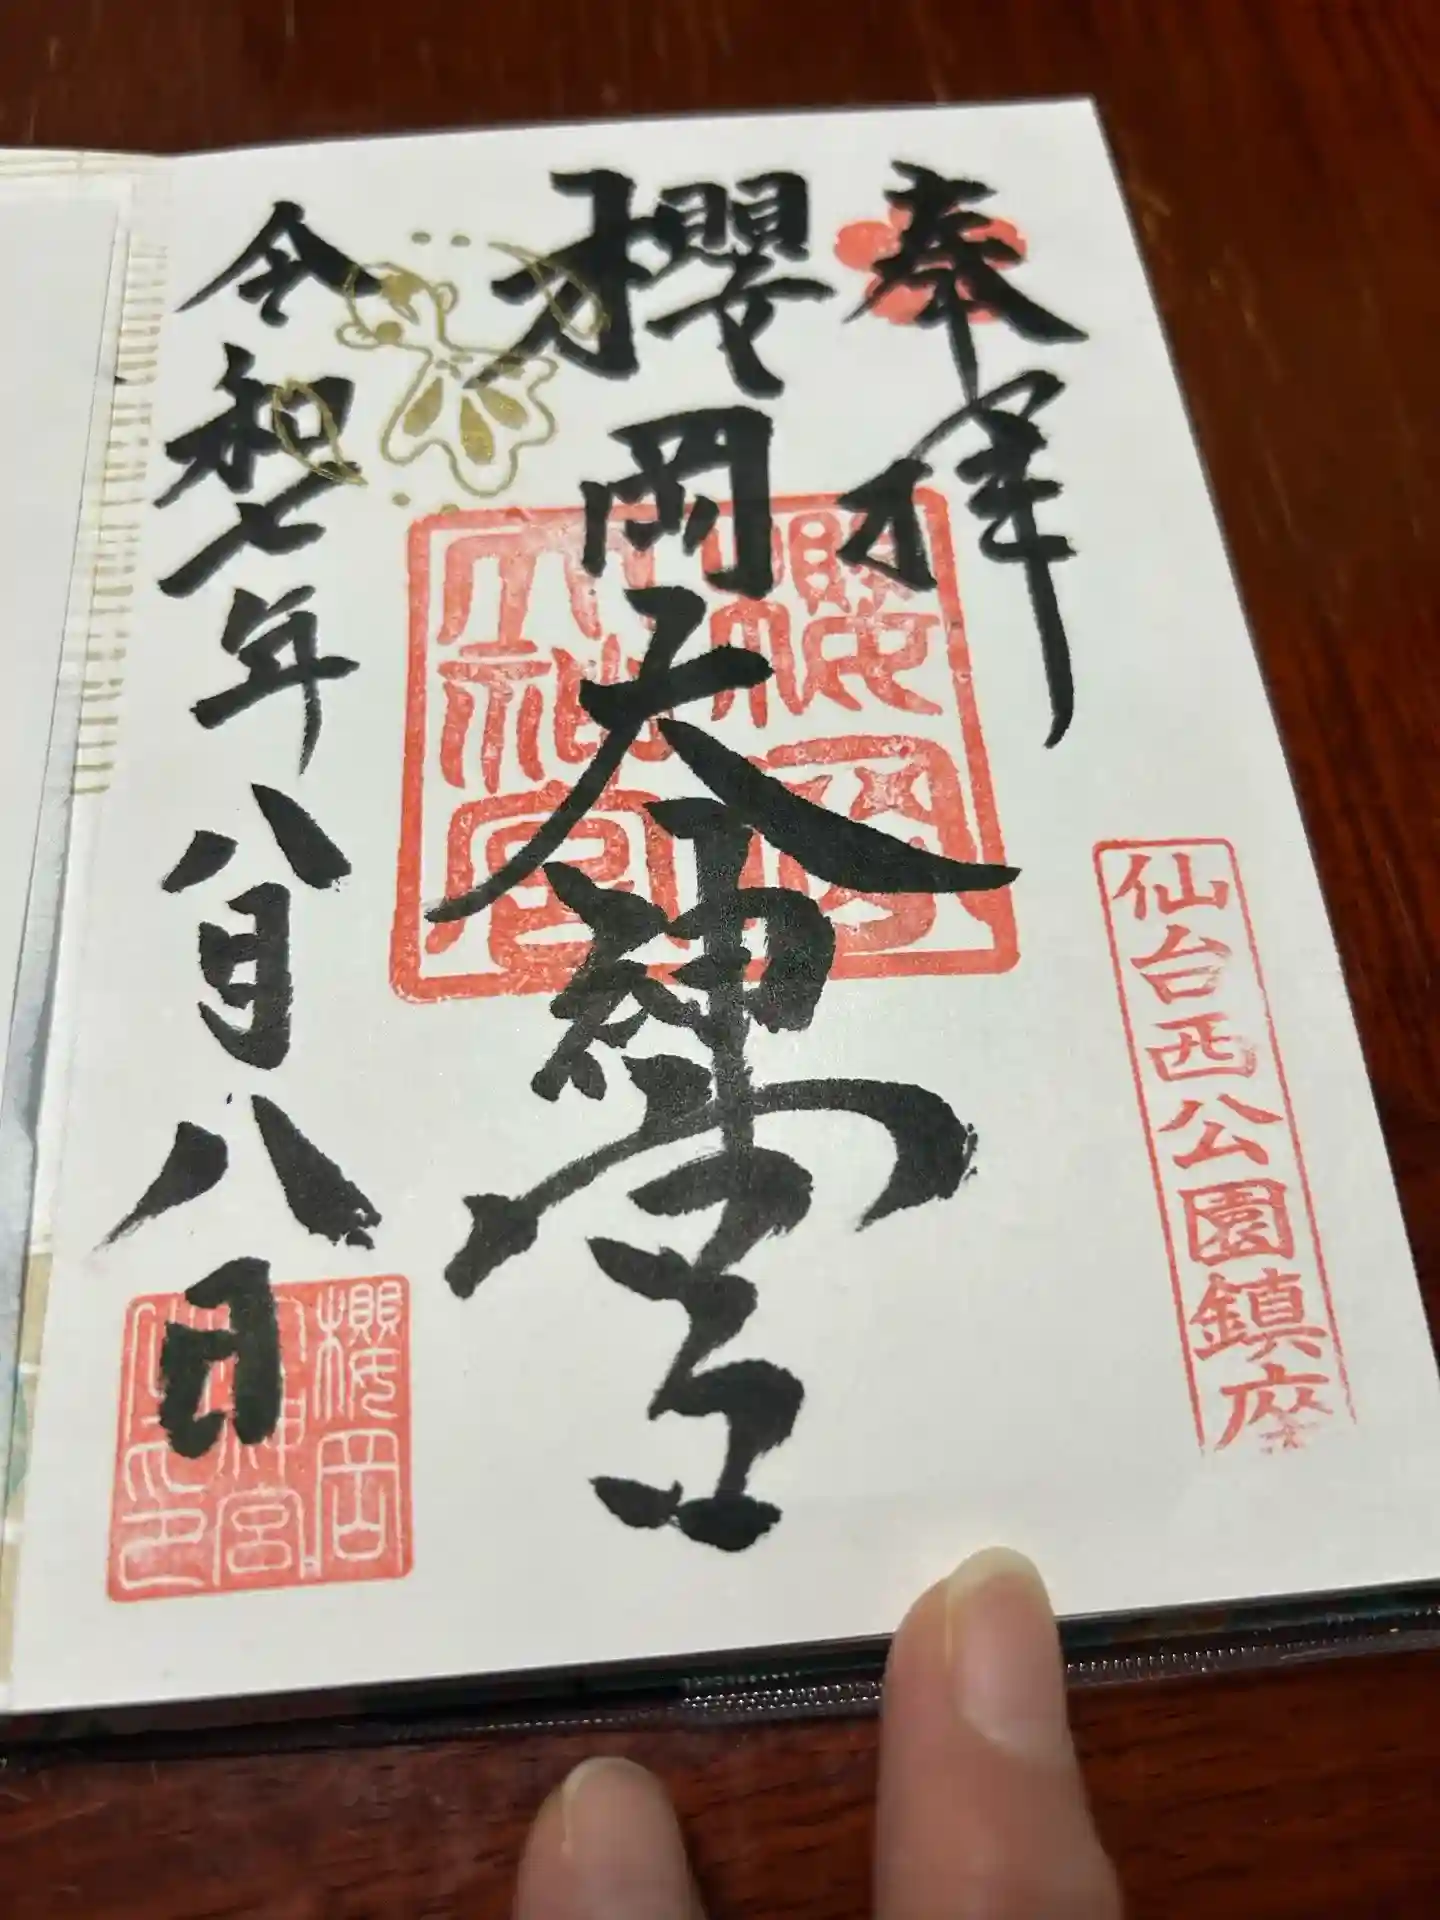 奉拝
仙台西公園鎮座
櫻岡大神宮
櫻岡
大神宮
令和七年八月八日
櫻岡
神宮
之印